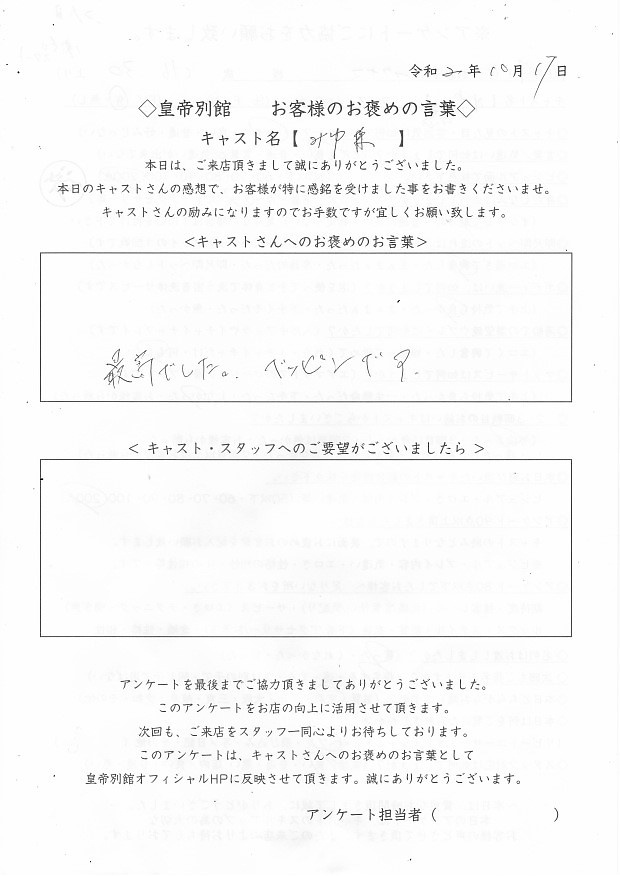 令和2年10月17日
◇皇帝別館　お客様のお褒めの言葉◇
キャスト名【 】
本日は、ご来店頂きまして誠にありがとうございました。
本日のキャストさんの感想で、お客様が特に感銘を受けました事をお書きくださいませ。
キャストさんの励みになりますのでお手数ですが宜しくお願い致します。
<キャストさんへのお褒めのお言葉>
最高でした。ベッピンです.
< キャスト・スタッフへのご要望がございましたら >
アンケートを最後までご協力頂きましてありがとうございました。
このアンケートをお店の向上に活用させて頂きます。
次回も、ご来店をスタッフ一同心よりお待ちしております。
このアンケートは、キャストさんへのお褒めのお言葉として
皇帝別館オフィシャルHPに反映させて頂きます。誠にありがとうございます。
アンケート担当者（　　　　　　）